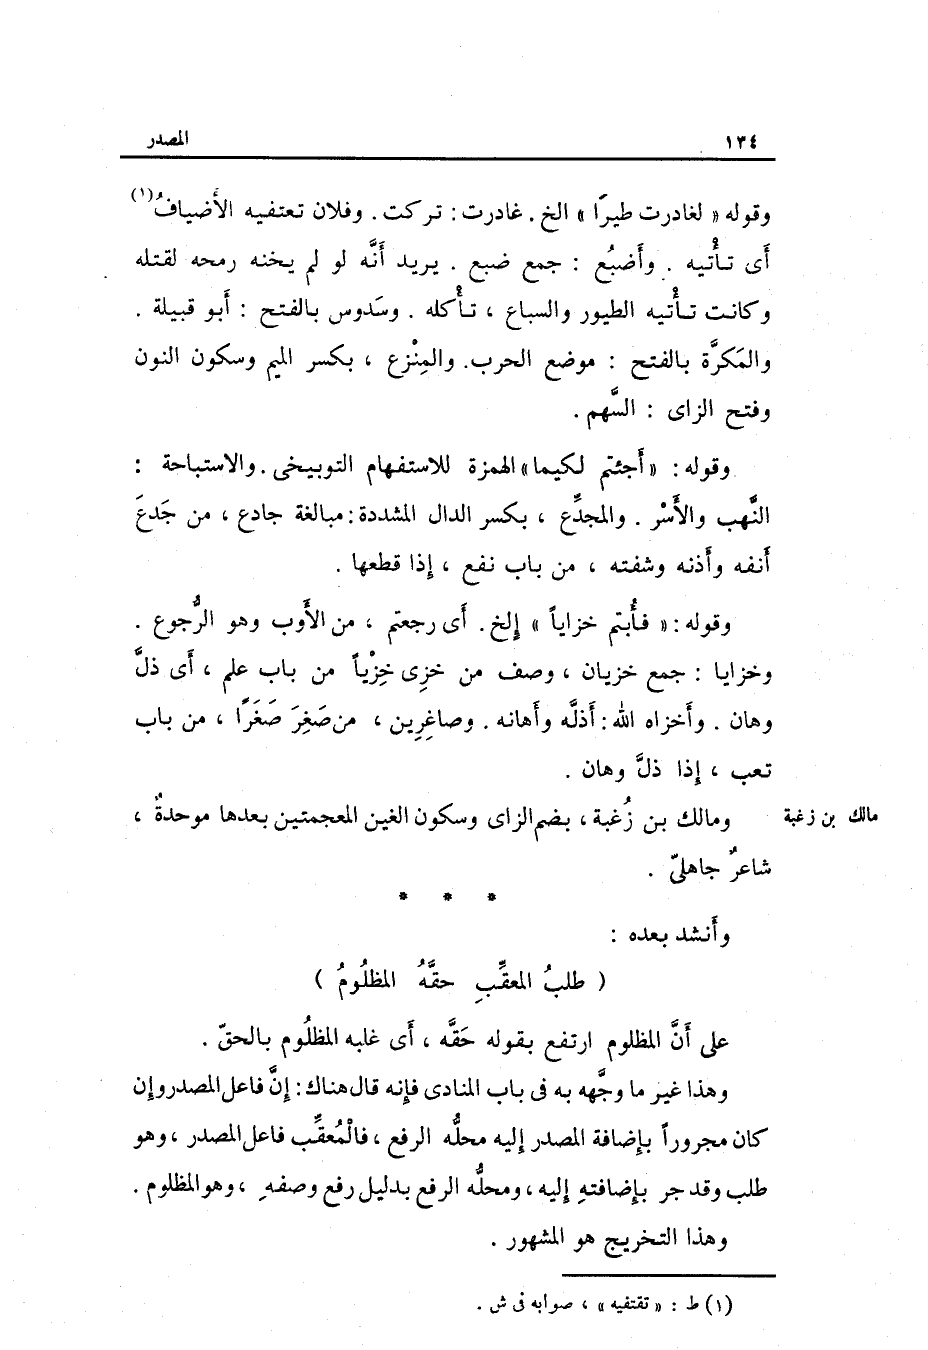 ١٣٤ المصدر
وقوله « لغادرت طيرًا » الخ . غادرت : تركت . وفلان تعتفيه الأضيافُ (١)
أَى تأْتيه . وأَضبُع : جمع ضبع . يريد أَنَّه لو لم يخنه رمحه لقتله
وكانت تأْتيه الطيور والسباع ، تأْكله . وسَدوس بالفتح : أَبو قبيلة .
والمَكرَّة بالفتح : موضع الحرب . والمِنْزع ، بكسر الميم وسكون النون
وفتح الزاى : السَّهم .
وقوله : « أَجئتم لكيما » الهمزة للاستفهام التوبيخى . والاستباحة :
النَّهب والأَسْر . والمجدِّع ، بكسر الدال المشددة : مبالغة جادع ، من جَدعَ
أَنفه وأُذنه وشفته ، من باب نفع ، إِذا قطعها .
وقوله : « فأُبتم خزاياً » إِلخ . أَى رجعتم ، من الأَوب وهو الرُّجوع .
وخزايا : جمع خزيان ، وصف من خزِى خِزْياً من باب علم ، أَى ذلَّ
وهان . وأَخزاه الله : أَذلَّه وأَهانه . وصاغِرِين ، من صَغِرَ صَغَرًا ، من باب
تعب ، إِذا ذلَّ وهان .
ومالك بن زُغبة ، بضم الزاى وسكون الغين المعجمتين بعدها موحدةٌ ،
مالك بن زغبة
شاعرٌ جاهلىّ .
* * *
وأَنشد بعده :
( طلبُ المعقِّبِ حقَّهُ المظلُومُ )
على أَنَّ المظلوم ارتفع بقوله حَقَّه ، أَى غلبه المظلُوم بالحقّ .
وهذا غير ما وجَّهه به فى باب المنادى فإِنه قال هناك : إِنَّ فاعل المصدر وإِن
كان مجروراً بإِضافة المصدر إِليه محلُّه الرفع ، فالْمُعقِّب فاعل المصدر ، وهو
طلب وقد جر بإِضافتهِ إِليه ، ومحلُّه الرفع بدليل رفع وصفهِ ، وهو المظلوم .
وهذا التخريج هو المشهور .
(١) ط : « تقتفيه » ، صوابه فى ش .